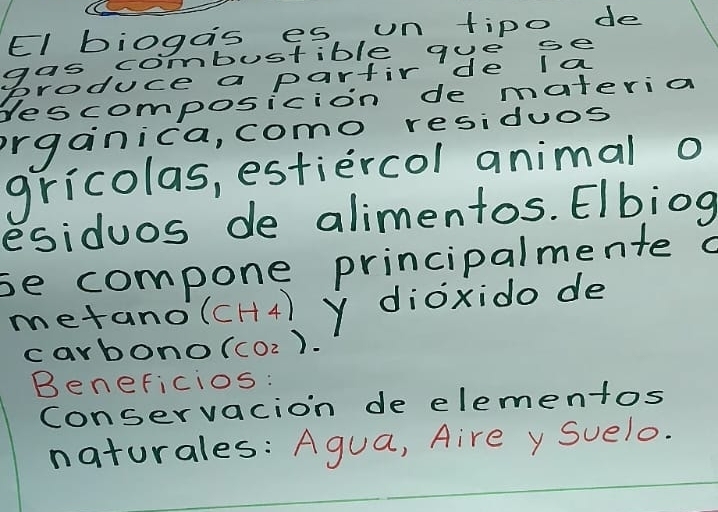 El biogás es un tipo de
gas combustible que se
produce a partir de la
descomposición de materia
orgánica, como residuos
grícolas, estiércol animal o
esiduos de alimentos. El biog
se compone principalmente d
metano (CH4) y dióxido de
carbono (CO2).
Beneficios:
Conservación de elementos
naturales: Agua, Aire y Suelo.